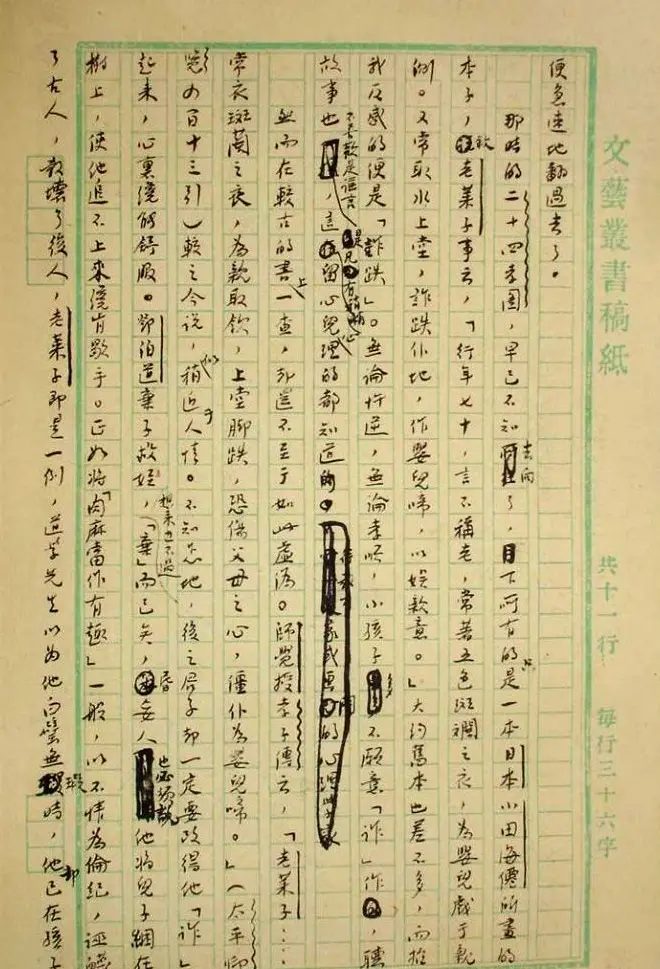 文藝叢書稿紙
共十一行 每行三十六字
便急速地翻過去了。
那時的二十四孝圖，早已不知去向了，目下所有的只是一本日本小田海僊所畫的
本子，敘老萊子事云，「行年七十，言不稱老，常著五色斑斕之衣，為嬰兒戲于親
側。又常取水上堂，詐跌仆地，作嬰兒啼，以娛親意。」大約舊本也差不多，而招
我反感的便是「詐跌」。無論忤逆，無論孝順，小孩子多不願意「詐」作，聽
故事也不喜歡是謠言，這是凡有稍稍留心兒童心理的都知道的。
然而在較古的書上一查，卻還不至于如此虛偽。師覺授孝子傳云，「老萊子……
常衣斑蘭之衣，為親取飲，上堂腳跌，恐傷父母之心，僵仆為嬰兒啼。」（太平御
覽四百十三引）較之今說，似稍近于人情。不知怎地，後之君子卻一定要改得他「詐」
起來，心裏纔能舒服。鄧伯道棄子救姪，想來也不過「棄」而已矣，昏妄人也必須說他將兒子綑在
樹上，使他追不上來纔肯歇手。正如將「肉麻當作有趣」一般，以不情為倫紀，誣衊
了古人，教壞了後人，老萊子即是一例，道學先生以為他白璧無瑕時，他卻已在孩子